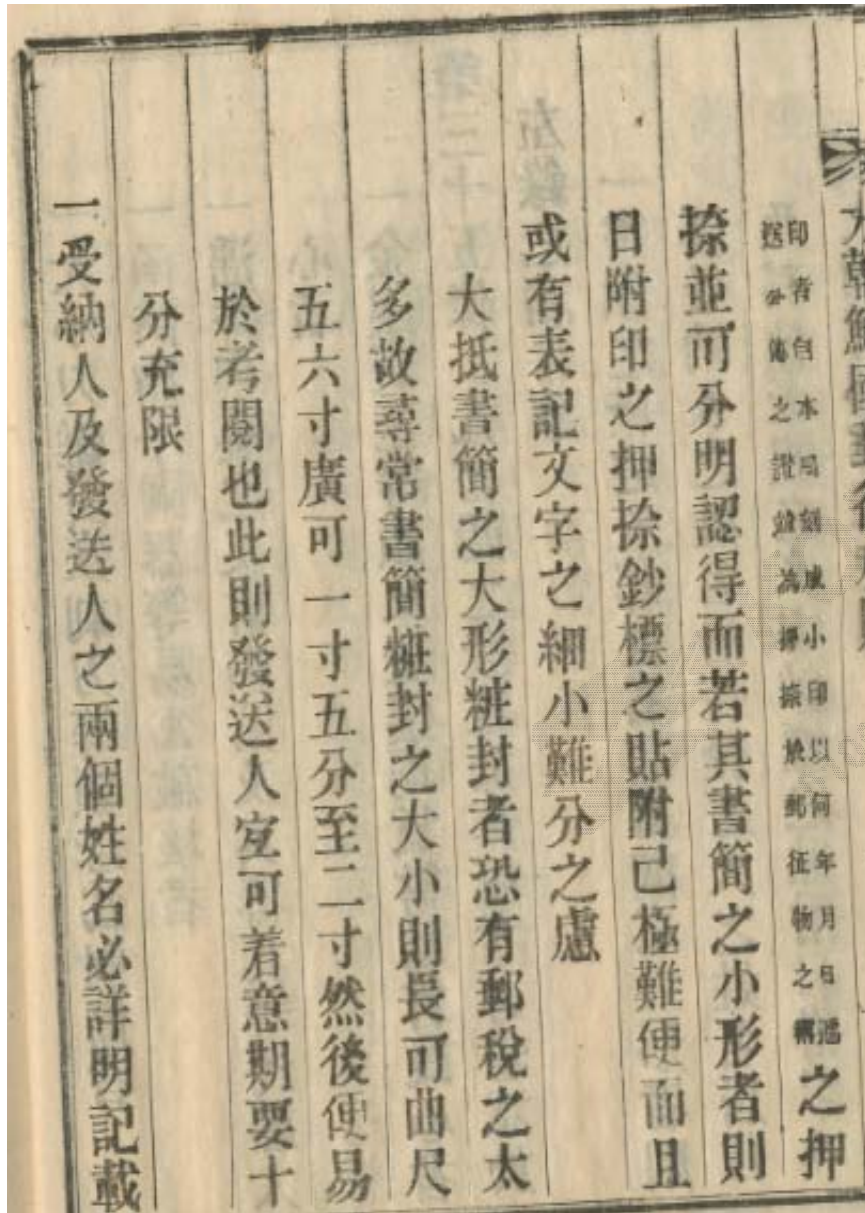 大朝鮮國郵征
印者自本局刻成小印以何年月日遞
送分傳之證鐫為押捺於郵征物之稱
之押
捺並可分明認得而若其書簡之小形者則
日附印之押捺鈔標之貼附己極難便而且
或有表記文字之細小難分之慮
大抵書簡之大形粧封者恐有郵稅之太
多故尋常書簡粧封之大小則長可曲尺
五六寸廣可一寸五分至二寸然後便易
於考閱也此則發送人宜可着意期要十
分充限
一受納人及發送人之兩個姓名必詳明記載